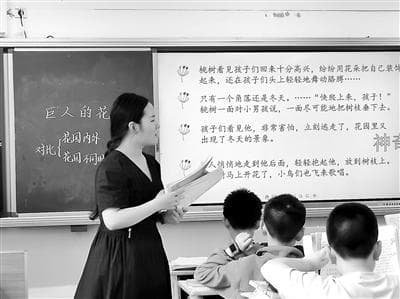 巨人的花
对比
花园内外
花园不同
桃树看见孩子们回来十分高兴，纷纷用花朵把自己装饰
起来，还在孩子们头上轻轻地舞动胳膊……
只有一个角落还是冬天。……“快爬上来，孩子！”
桃树一面对小男孩说，一面尽可能地把树枝垂下去。
孩子们看见他，非常害怕，立刻逃走了，花园里又
出现了冬天的景象。
人悄悄地走到他后面，轻轻抱起他，放到树枝上。
马上开花了，小鸟们也飞来歌唱。
神奇